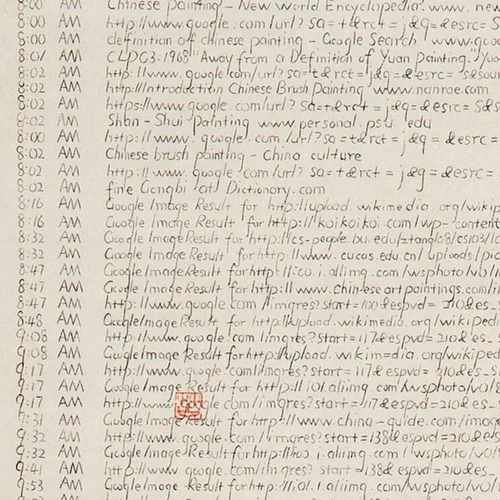 8:00 AM Chinese painting - New World Encyclopedia. www. new
8:00 AM http://www.google .com/url? sa=t&rct = j&q=&esrc= S
8:00 AM definition of chinese painting - Google Search www.goo
8:01 AM CLPC3.1968 "Away from a Definition of Yuan Painting."
8:02 AM http://www. google.com/url? sa=t&rct = j&q=&esrc= s&sou
8:02 AM http://Introduction Chinese Brush Painting www.nanrae.com
8:02 AM https://www.google.com/url? sa=t&rct = j&q=&esrc= S&s
8:02 AM Shan - Shui Painting www.personal.psu. edu
8:00 AM http://www. google .com /url?sa=t&rct = j&q =&esrc =
8:02 AM Chinese brush painting - China culture
8:02 AM http://www. google .com /url? sa=t&rct = j&q = &esrc =
8:02 AM fine Gongbi at Dictionary.com
8:16 AM Google Image Result for http://upload. wikimedia .org/wikip
8:16 AM Google Image Result for http://koikoikoi.com/wp-content
8:32 AM Google Image Result for http://cs-people.bu.edu/ztangl08/cs103/
8:32 AM Google Image Result for http://www. cucas.edu.cn/ uploads/pic
8:47 AM Google Image Result for http://i00.i.aliimg.com/wsphoto/v0/1
8:47 AM Google Image Result for http://www.chinese artpaintings.com/im
8:47 AM http://www.google.com/imgres?start=100&espvd= 210&es_
8:48 AM Google Image Result for http://upload.wikimedia.org/wikipedi
9:08 AM http://www. google.com/imgres?start=117&espvd=210&es_s
9:08 AM Google Image Result for http://upload. wikim=dia.org/wikiped
9:17 AM http://www. google.com/imgres? start= 117&espvd=210&es_
9:17 AM Google Image Result for http://i01.aliimg.com/wsphoto/v0/
9:17 AM http://www.google com/imgres?start=117&espvd=210&es_
9:31 AM Google Image Result for http://www.china-guide.com/image
9:32 AM http://www. google.com/imgres?start=138&espvd=210&es
9:32 AM Google Image Result for http://i00.i.aliimg.com/wsphoto/v0/
9:41 AM http://www. google.com/imgres?start=138&espvd=210&es_
9:53 AM Google Image Result for http://i01.i.aliimg.com/wsphoto/v0